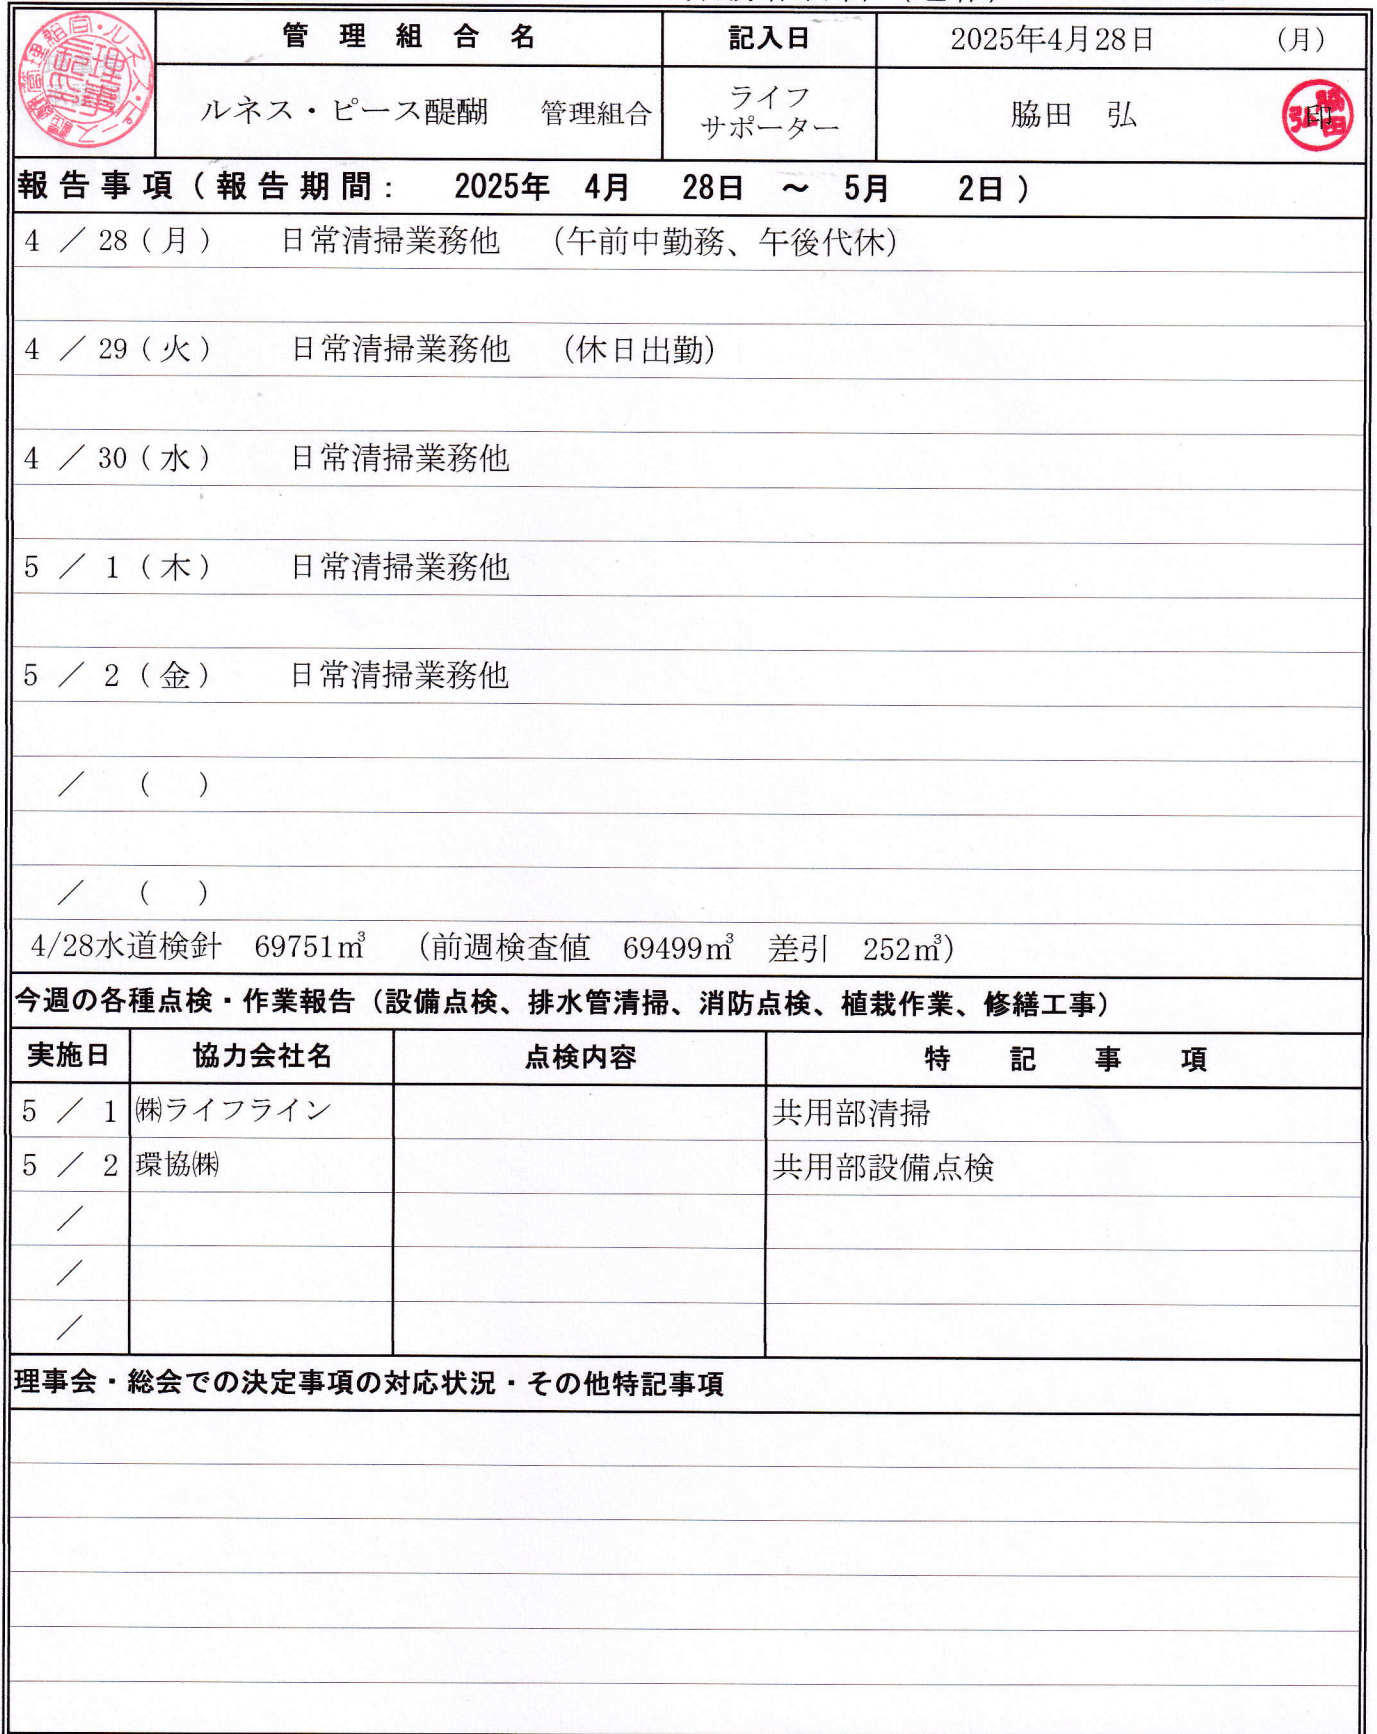 管理組合名 記入日 2025年4月28日 (月)
ルネス・ピース醍醐 管理組合 ライフサポーター 脇田 弘 印
報告事項(報告期間: 2025年 4月 28日 ~ 5月 2日)
4 / 28 (月) 日常清掃業務他 (午前中勤務、午後代休)
4 / 29 (火) 日常清掃業務他 (休日出勤)
4 / 30 (水) 日常清掃業務他
5 / 1 (木) 日常清掃業務他
5 / 2 (金) 日常清掃業務他
/ ( )
/ ( )
4/28水道検針 69751㎥ (前週検査値 69499㎥ 差引 252㎥)
今週の各種点検・作業報告(設備点検、排水管清掃、消防点検、植栽作業、修繕工事)
実施日 協力会社名 点検内容 特記事項
5 / 1 ㈱ライフライン 共用部清掃
5 / 2 環協㈱ 共用部設備点検
/
/
/
理事会・総会での決定事項の対応状況・その他特記事項